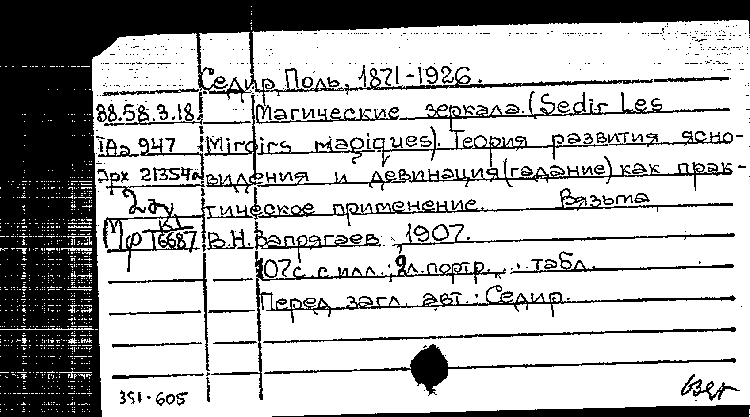 Седир Поль, 1871-1926.
38.58.3.18. Магические зеркала. (Sedir Les
IАэ 947 Miroirs magiques). Теория развития ясно-
Арх 21354а видения и девинация (гадание) как прак-
тическое применение. Вязьма
Мф К1 16687 В.Н. Запрягаев, 1907.
107с. с илл.; 2л. портр., табл.
Перед загл. авт.: Седир.
351-605